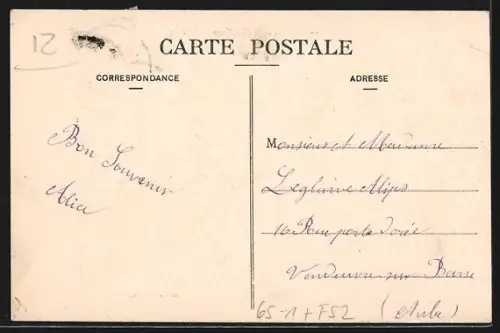 12
CARTE POSTALE
CORRESPONDANCE
ADRESSE
Bon Souvenir
Alice
Monsieur et Madame
16 Rue porte Dorée
Vendeuvre sur Barse
(Aube)
65-1 + F52